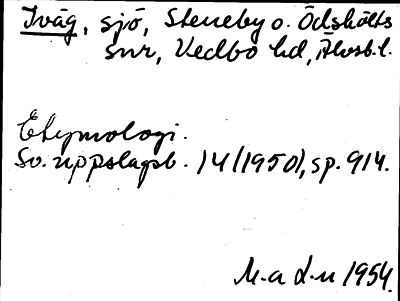 Iväg, sjö, Steneby o. Ödskölts
snr, Vedbo hd, Älvsb. l.
Etymologi.
Sv. uppslagsb. 14 (1950), sp. 914.
M-a d-n 1954.